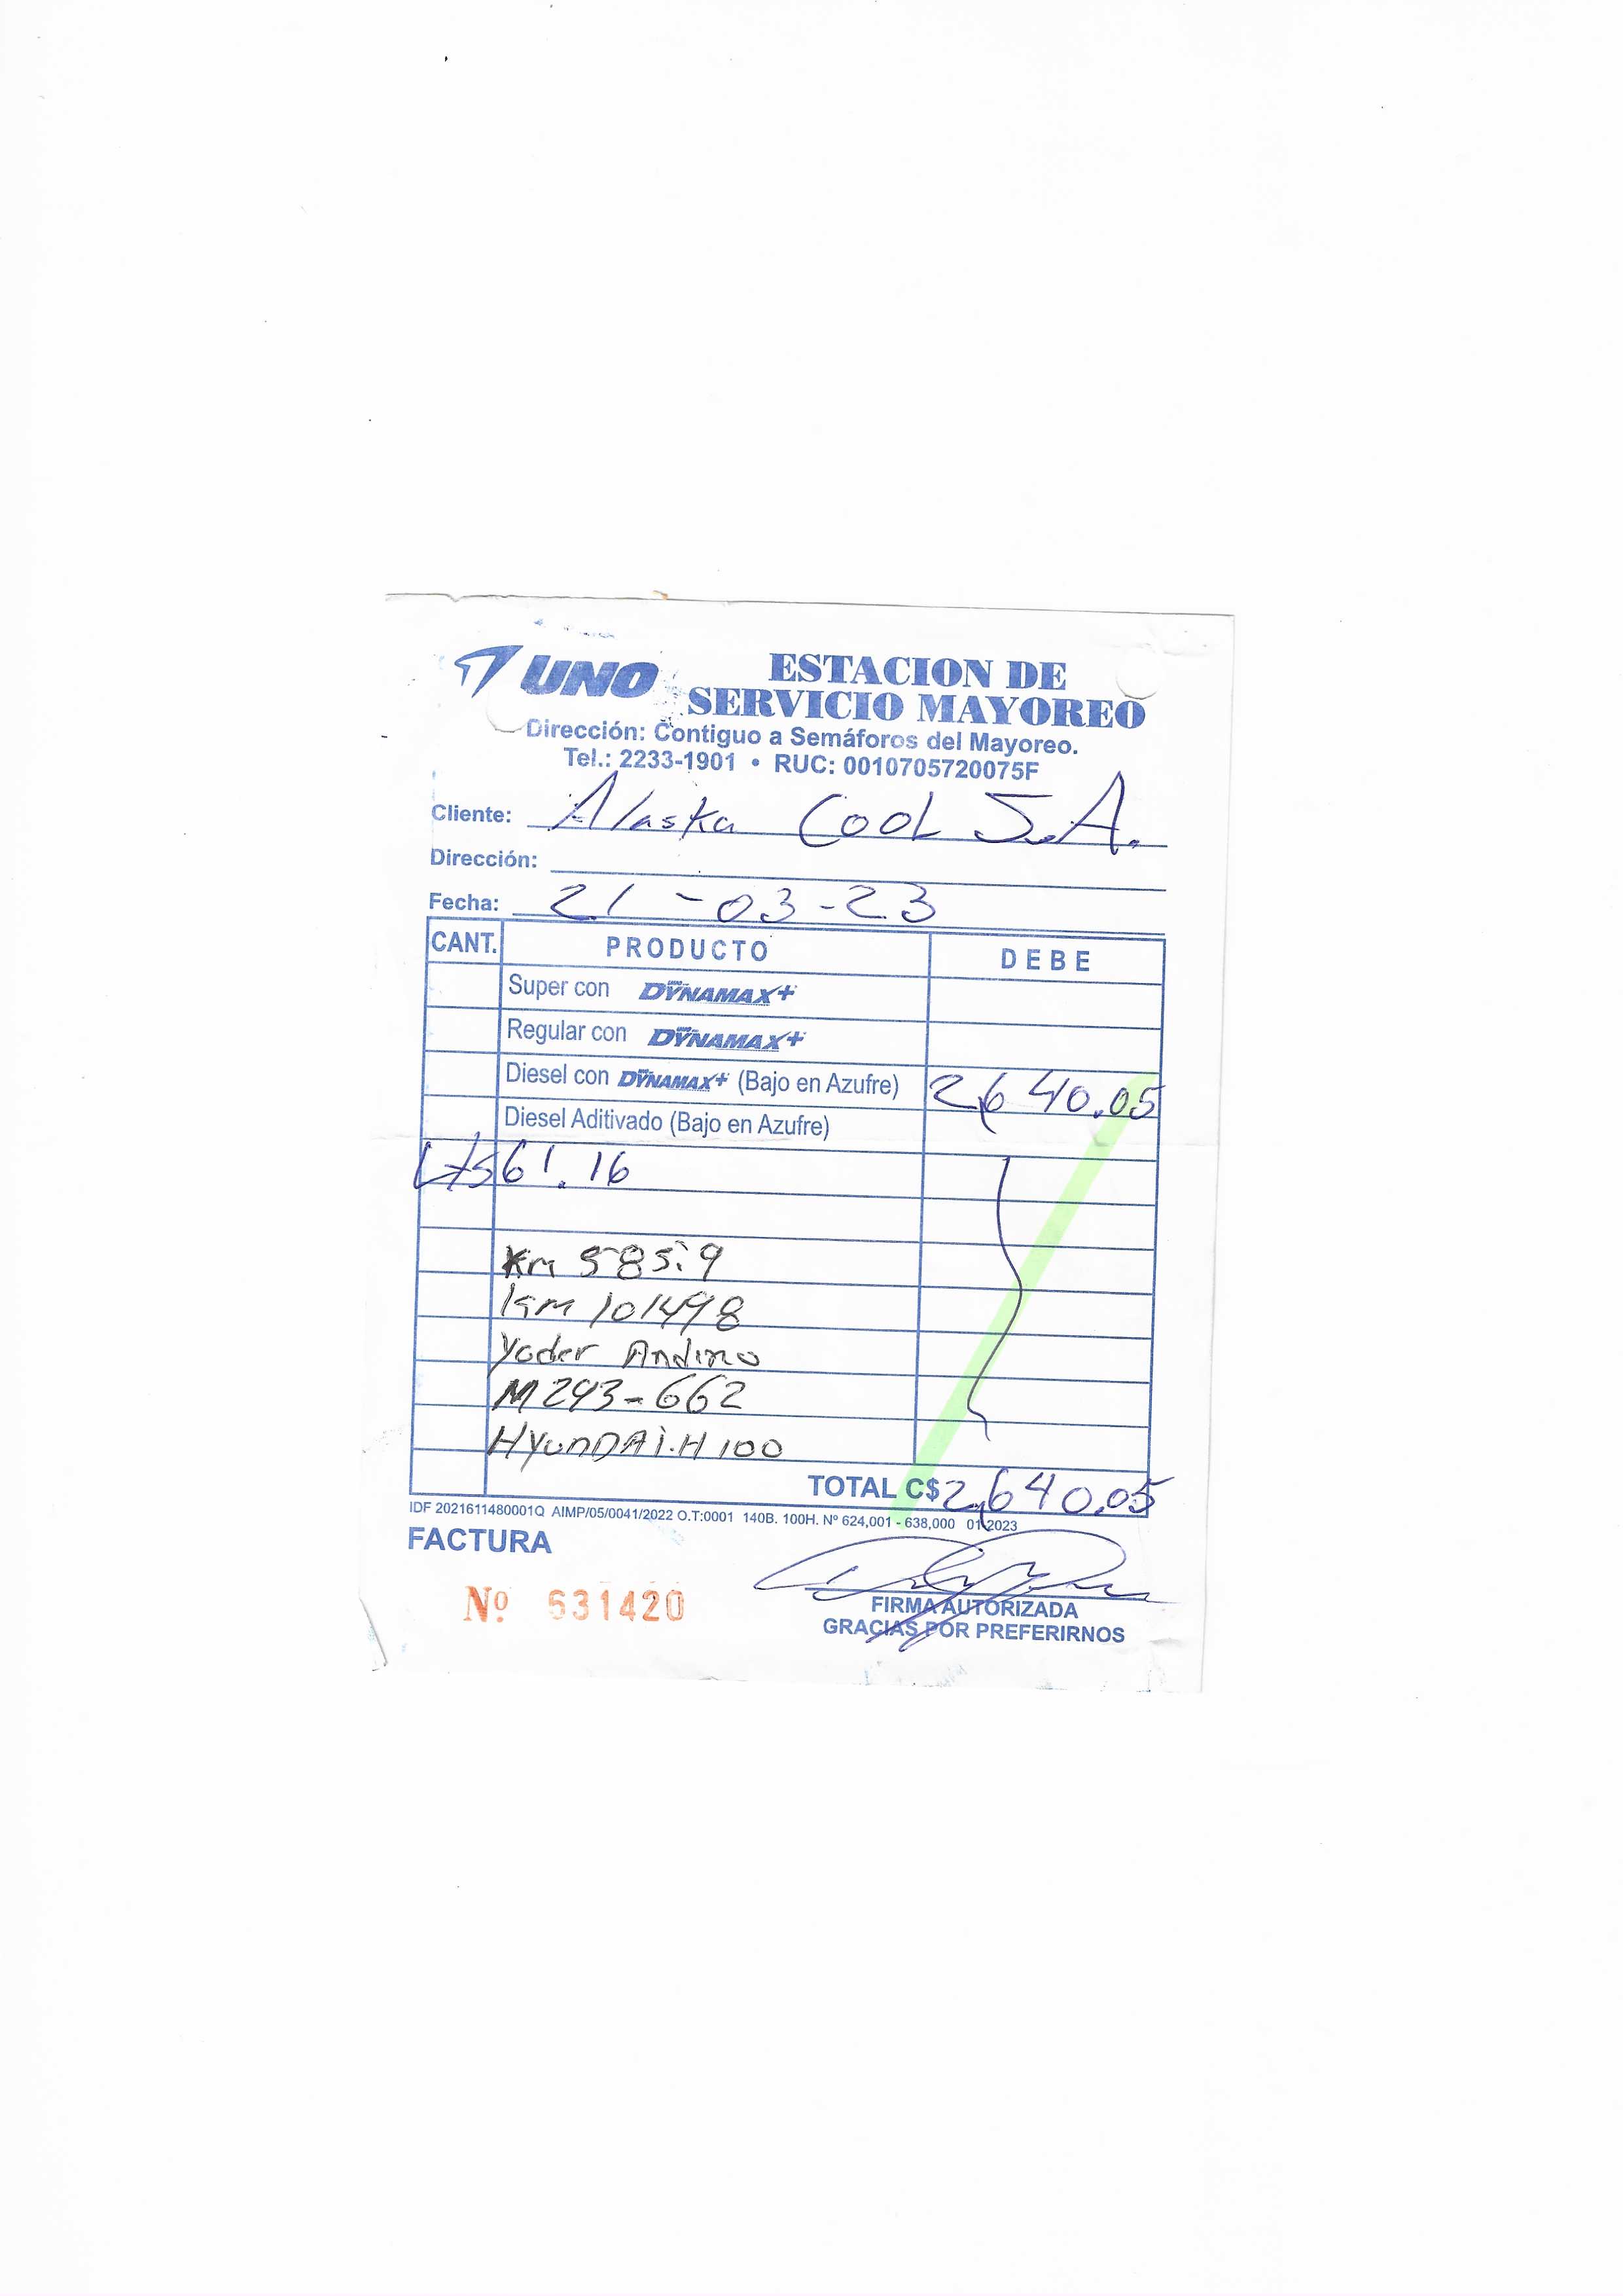 UNO
ESTACION DE
SERVICIO MAYOREO
Dirección: Contiguo a Semáforos del Mayoreo.
Tel.: 2233-1901 • RUC: 0010705720075F
Cliente: Alaska Cool S.A.
Dirección:
Fecha: 21-03-23
CANT. PRODUCTO DEBE
Super con DYNAMAX+
Regular con DYNAMAX+
Diesel con DYNAMAX+ (Bajo en Azufre) 2,640.05
Diesel Aditivado (Bajo en Azufre)
Lts 61.16
Km 585.9
Km 101498
Yoder Andino
M293-662
HYUNDAI.H100
TOTAL C$ 2,640.05
IDF 2021611480001Q AIMP/05/0041/2022 O.T:0001 140B. 100H. Nº 624,001 - 638,000 01/2023
FACTURA
Nº 631420
FIRMA AUTORIZADA
GRACIAS POR PREFERIRNOS